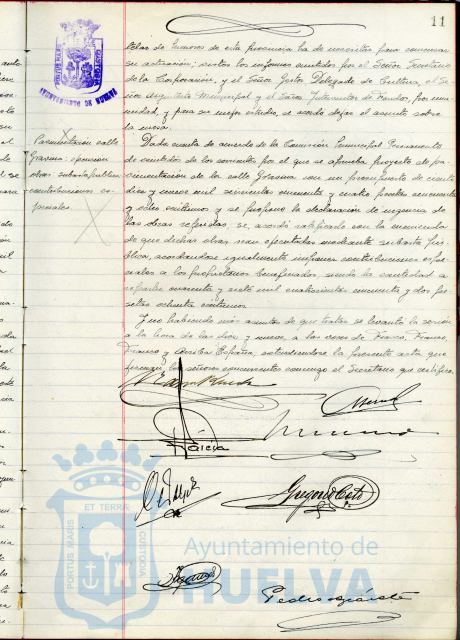 11
AYUNTAMIENTO DE HUELVA
de esta provincia ha de necesitar para comenzar
su actuación; vistos los informes emitidos por el Señor Secretario
de la Corporación, y el Señor Gestor Delegado de Cultura, el Se
ñor Arquitecto Municipal y el Señor Interventor de Fondos, por una
nimidad, y para su mejor estudio, se acordó dejar el asunto sobre
la mesa.
Pavimentación calle
Gravina: ejecución
obras subasta pública
contribuciones es-
peciales.
Dada cuenta de acuerdo de la Comisión Municipal Permanente
de veintidós de los corrientes por el que se aprueba proyecto de pa
vimentación de la calle Gravina con un presupuesto de ciento
diez y nueve mil seiscientas cincuenta y cuatro pesetas cincuenta
y céntimos y se propone la declaración de urgencia de
las obras referidas, se acordó ratificarlo con la enmienda
de que dichas obras sean ejecutadas mediante subasta pú-
blica, acordándose igualmente imponer contribuciones espe-
ciales a los propietarios beneficiados, siendo la cantidad a
repartir cuarenta y siete mil cuatrocientas cincuenta y dos pe
setas ochenta céntimos.
Y no habiendo más asuntos de que tratar se levantó la sesión
a la hora de las diez y nueve, a las voces de Franco, Franco,
Franco y Arriba España, extendiéndose la presente acta que
firman los señores concurrentes conmigo el Secretario que certifico.
García
Gregorio
Pedro
ET TERRÆ
PORTUS MARIS
CUSTODIA
Ayuntamiento de
HUELVA